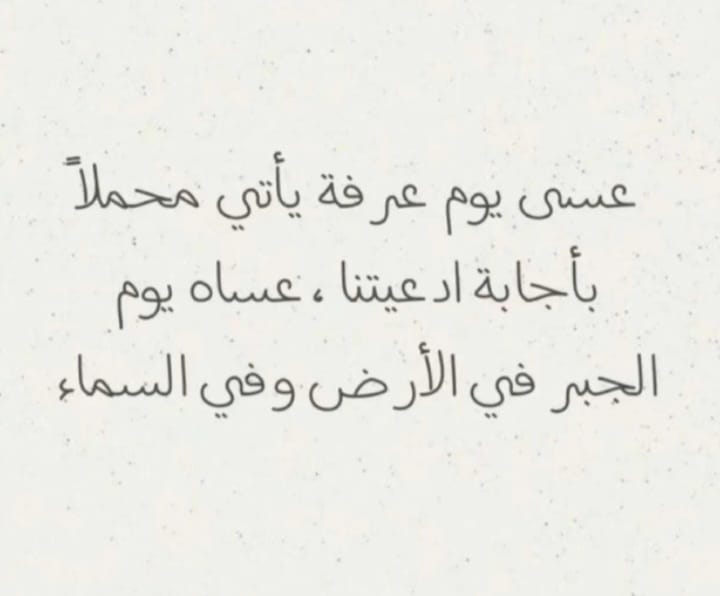 عسى يوم عرفة يأتي محملاً
بأجابة ادعيتنا ، عساه يوم
الجبر في الأرض وفي السماء